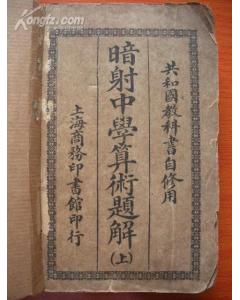 共和國教科書自修用
暗射中學算術題解(上)
上海商務印書館印行